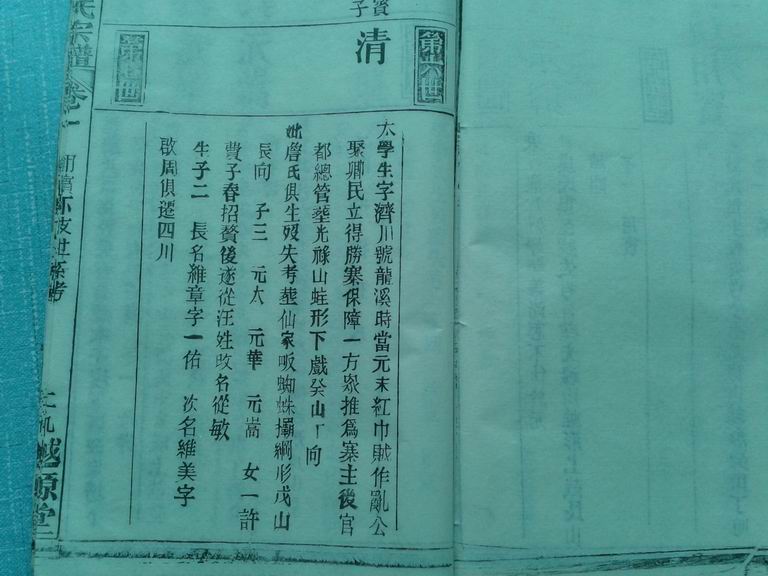 賓子
清
第十八世
太學生字濟川號龍溪時當元末紅巾賊作亂公
聚鄉民立得勝寨保障一方衆推爲寨主後官
都總管塟光祿山蛙形下戲癸山丁向
妣詹氏俱生歿失考塟仙家坂蜘蛛攝網形戊山
辰向 子三 元太 元華 元嵩 女一許
費子春招贅後遂從汪姓改名從敏
生子二 長名維章字一佑 次名維美字
啟周俱遷四川
氏宗譜
卷一
越源堂